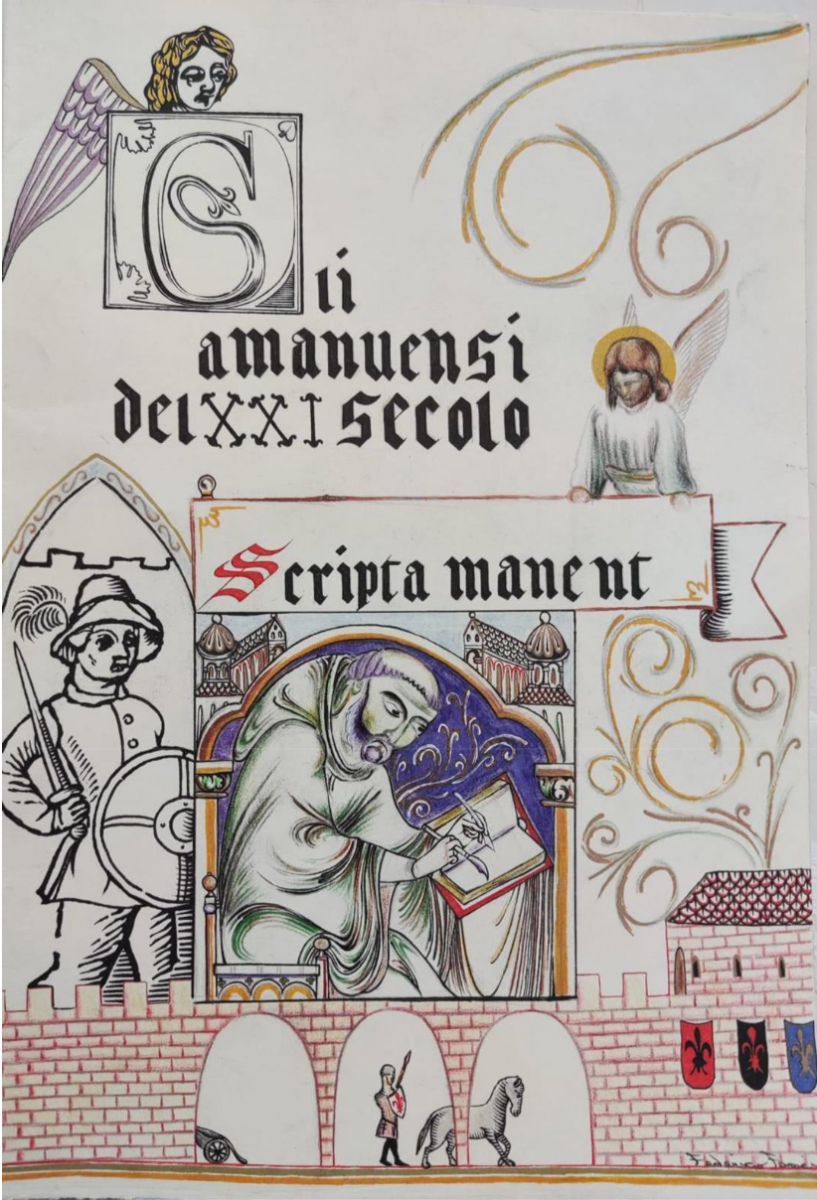 Gli
amanuensi
del XXI secolo
Scripta manent
Federica